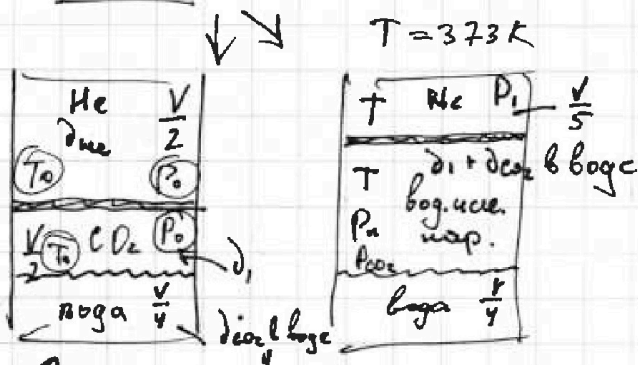 T = 373 K
He V/2
ν_He
T₀ P₀
V/2 T₀ CO₂ P₀
ν₁
вода V/4
ν_CO₂ в воде
T He P₁ V/5
T ν₁ + ν_CO₂ в воде
вод. нас.
Pн пар.
P_CO₂
вода V/4